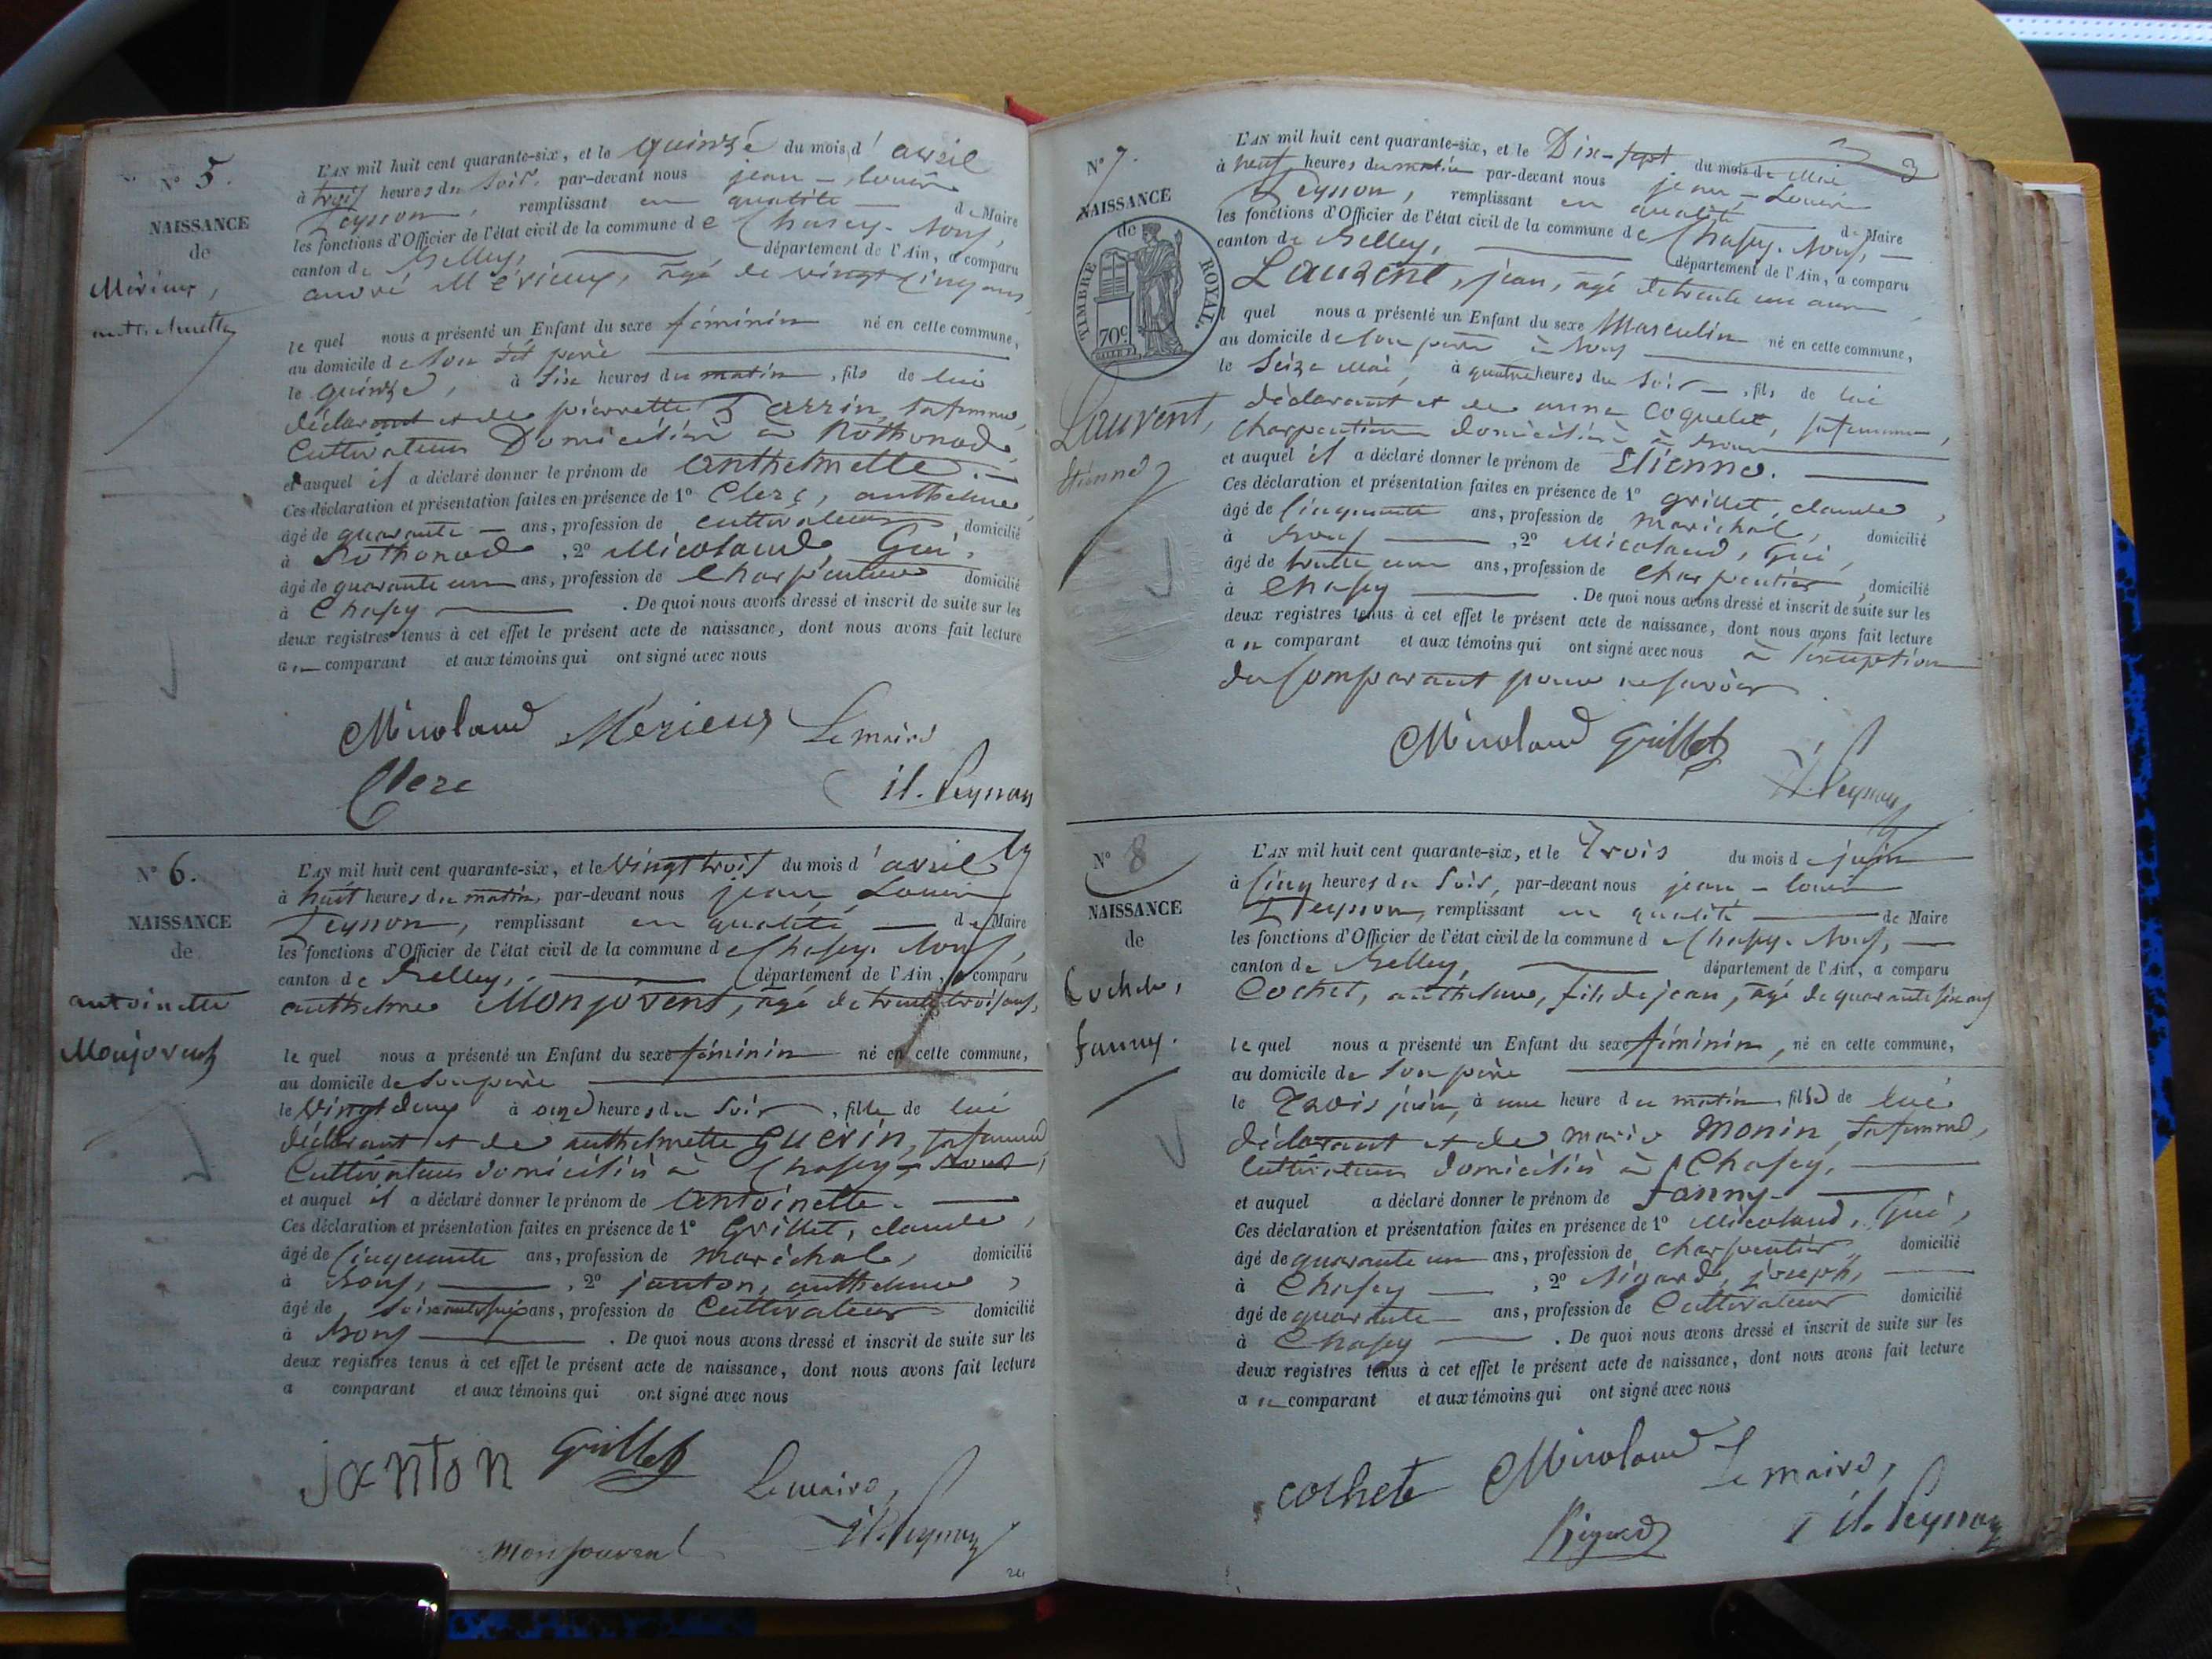 N° 5.
NAISSANCE
de
Mérieux,
anthelmette
L'AN mil huit cent quarante-six, et le quinze du mois d'avril
à trois heures du soir, par-devant nous jean-louis
Peysson, remplissant en qualité de Maire
les fonctions d'Officier de l'état civil de la commune de Chazey-bons,
canton de Belley, département de l'Ain, a comparu
andré Mérieux, âgé de vingt cinq ans,
le quel nous a présenté un Enfant du sexe féminin né en cette commune,
au domicile de son dit père
le quinze, à six heures du matin, fils de lui
déclarant et de pierrette Perrin, sa femme,
Cultivateurs Domiciliés à Rothonod,
et auquel il a déclaré donner le prénom de anthelmette.
Ces déclaration et présentation faites en présence de 1° Clerc, anthelme,
âgé de quarante ans, profession de cultivateur domicilié
à Rothonod, 2° Micoland, Gui,
âgé de quarante un ans, profession de Charpentier domicilié
à Chazey. De quoi nous avons dressé et inscrit de suite sur les
deux registres tenus à cet effet le présent acte de naissance, dont nous avons fait lecture
au comparant et aux témoins qui ont signé avec nous
Micoland Mérieux Le maire
Clerc jl. Peysson
N° 6.
NAISSANCE
de
antoinette
Monjovent
L'AN mil huit cent quarante-six, et le vingt trois du mois d'avril
à huit heures du matin, par-devant nous jean Louis
Peysson, remplissant en qualité de Maire
les fonctions d'Officier de l'état civil de la commune de Chazey-bons,
canton de Belley, département de l'Ain, a comparu
anthelme Monjovent, âgé de trente trois ans,
le quel nous a présenté un Enfant du sexe féminin né en cette commune,
au domicile de son père
le vingt deux à onze heures du soir, fille de lui
déclarant et de anthelmette Guérin, sa femme
Cultivateurs domiciliés à Chazey-bons,
et auquel il a déclaré donner le prénom de antoinette.
Ces déclaration et présentation faites en présence de 1° Grillet, claude,
âgé de Cinquante ans, profession de maréchal, domicilié
à bons, 2° janton, anthelme,
âgé de ans, profession de Cultivateur domicilié
à bons. De quoi nous avons dressé et inscrit de suite sur les
deux registres tenus à cet effet le présent acte de naissance, dont nous avons fait lecture
a comparant et aux témoins qui ont signé avec nous
janton Grillet Le maire,
jl. Peysson
monjouvent
N° 7.
NAISSANCE
de
TIMBRE ROYAL.
70c
Laurent,
Etienne
3
L'AN mil huit cent quarante-six, et le Dix-sept du mois de Mai
à neuf heures du matin par-devant nous jean-Louis
Peysson, remplissant en qualité de Maire
les fonctions d'Officier de l'état civil de la commune de Chazey-bons,
canton de Belley, département de l'Ain, a comparu
Laurent, jean, âgé de trente un ans
le quel nous a présenté un Enfant du sexe Masculin né en cette commune,
au domicile de son père à bons
le Seize Mai, à quatre heures du soir, fils de lui
déclarant et de anne Coquelet, sa femme,
Charpentier domiciliés à bons
et auquel il a déclaré donner le prénom de Etienne.
Ces déclaration et présentation faites en présence de 1° grillet, claude,
âgé de Cinquante ans, profession de maréchal, domicilié
à bons, 2° Micoland, Gui,
âgé de ans, profession de Charpentier, domicilié
à Chazey. De quoi nous avons dressé et inscrit de suite sur les
deux registres tenus à cet effet le présent acte de naissance, dont nous avons fait lecture
au comparant et aux témoins qui ont signé avec nous à l'exception
du Comparant pour ne savoir
Micoland Grillet
jl. Peysson
N° 8
NAISSANCE
de
Cochet,
fanny.
L'AN mil huit cent quarante-six, et le Trois du mois de juin
à Cinq heures du soir, par-devant nous jean-louis
Peysson, remplissant en qualité de Maire
les fonctions d'Officier de l'état civil de la commune de Chazey-bons,
canton de Belley, département de l'Ain, a comparu
Cochet, anthelme, fils de jean, âgé de quarante six ans
le quel nous a présenté un Enfant du sexe féminin, né en cette commune,
au domicile de son père
le Trois juin, à une heure du matin, fils de lui
déclarant et de marie Monin, sa femme,
Cultivateurs domiciliés à Chazey,
et auquel a déclaré donner le prénom de fanny
Ces déclaration et présentation faites en présence de 1° Micoland, Gui,
âgé de quarante un ans, profession de charpentier, domicilié
à Chazey, 2° Rigard, joseph,
âgé de quarante ans, profession de Cultivateur domicilié
à Chazey. De quoi nous avons dressé et inscrit de suite sur les
deux registres tenus à cet effet le présent acte de naissance, dont nous avons fait lecture
au comparant et aux témoins qui ont signé avec nous
cochet Micoland Le maire,
Rigard jl. Peysson